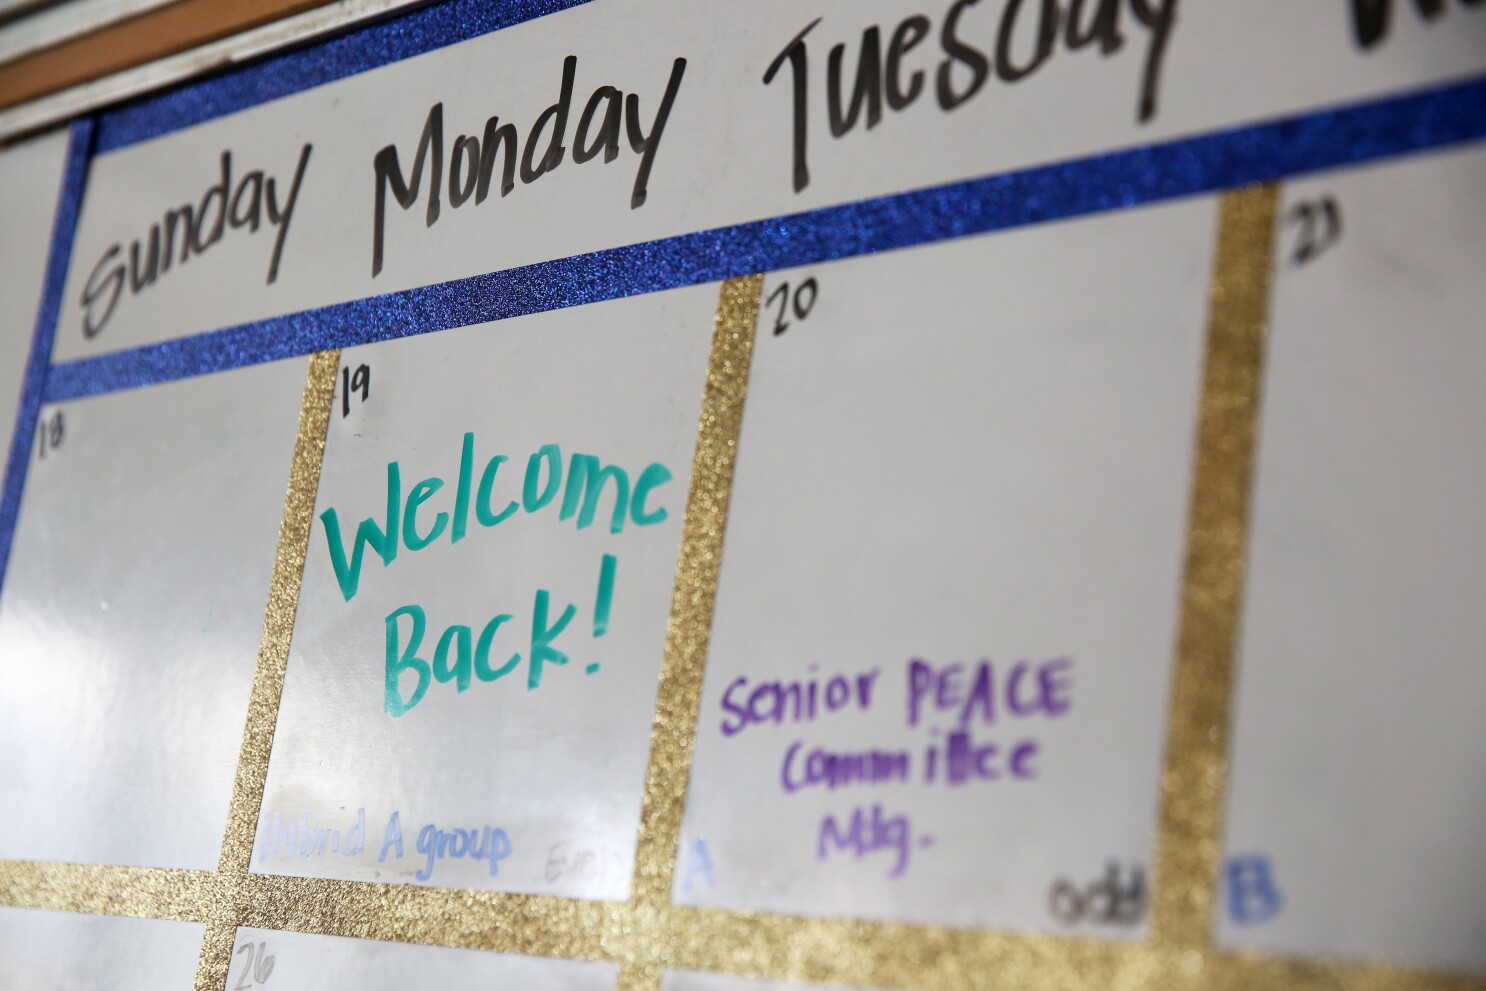 Sunday Monday Tuesday
18
19
Welcome
Back!
Hybrid A group Even
20
Senior PEACE
Committee
Mtg.
A odd
21
B
26